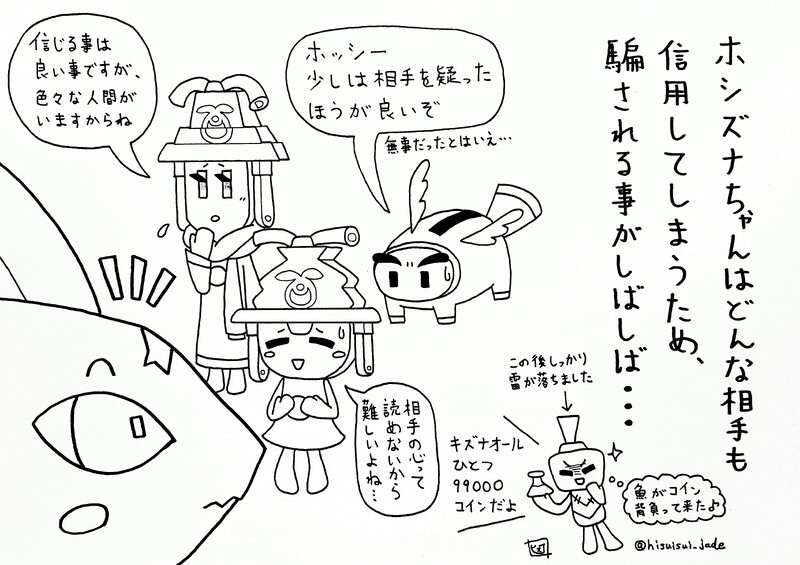 ホシズナちゃんはどんな相手も
信用してしまうため、
騙される事がしばしば・・・
信じる事は
良い事ですが、
色々な人間が
いますからね
ホッシー
少しは相手を疑った
ほうが良いぞ
無事だったとはいえ…
相手の心って
読めないから
難しいよね…
この後しっかり
雷が落ちました
キズナオール
ひとつ
99000
コインだよ
魚がコイン
背負って来たよ
@hisuisui_jade